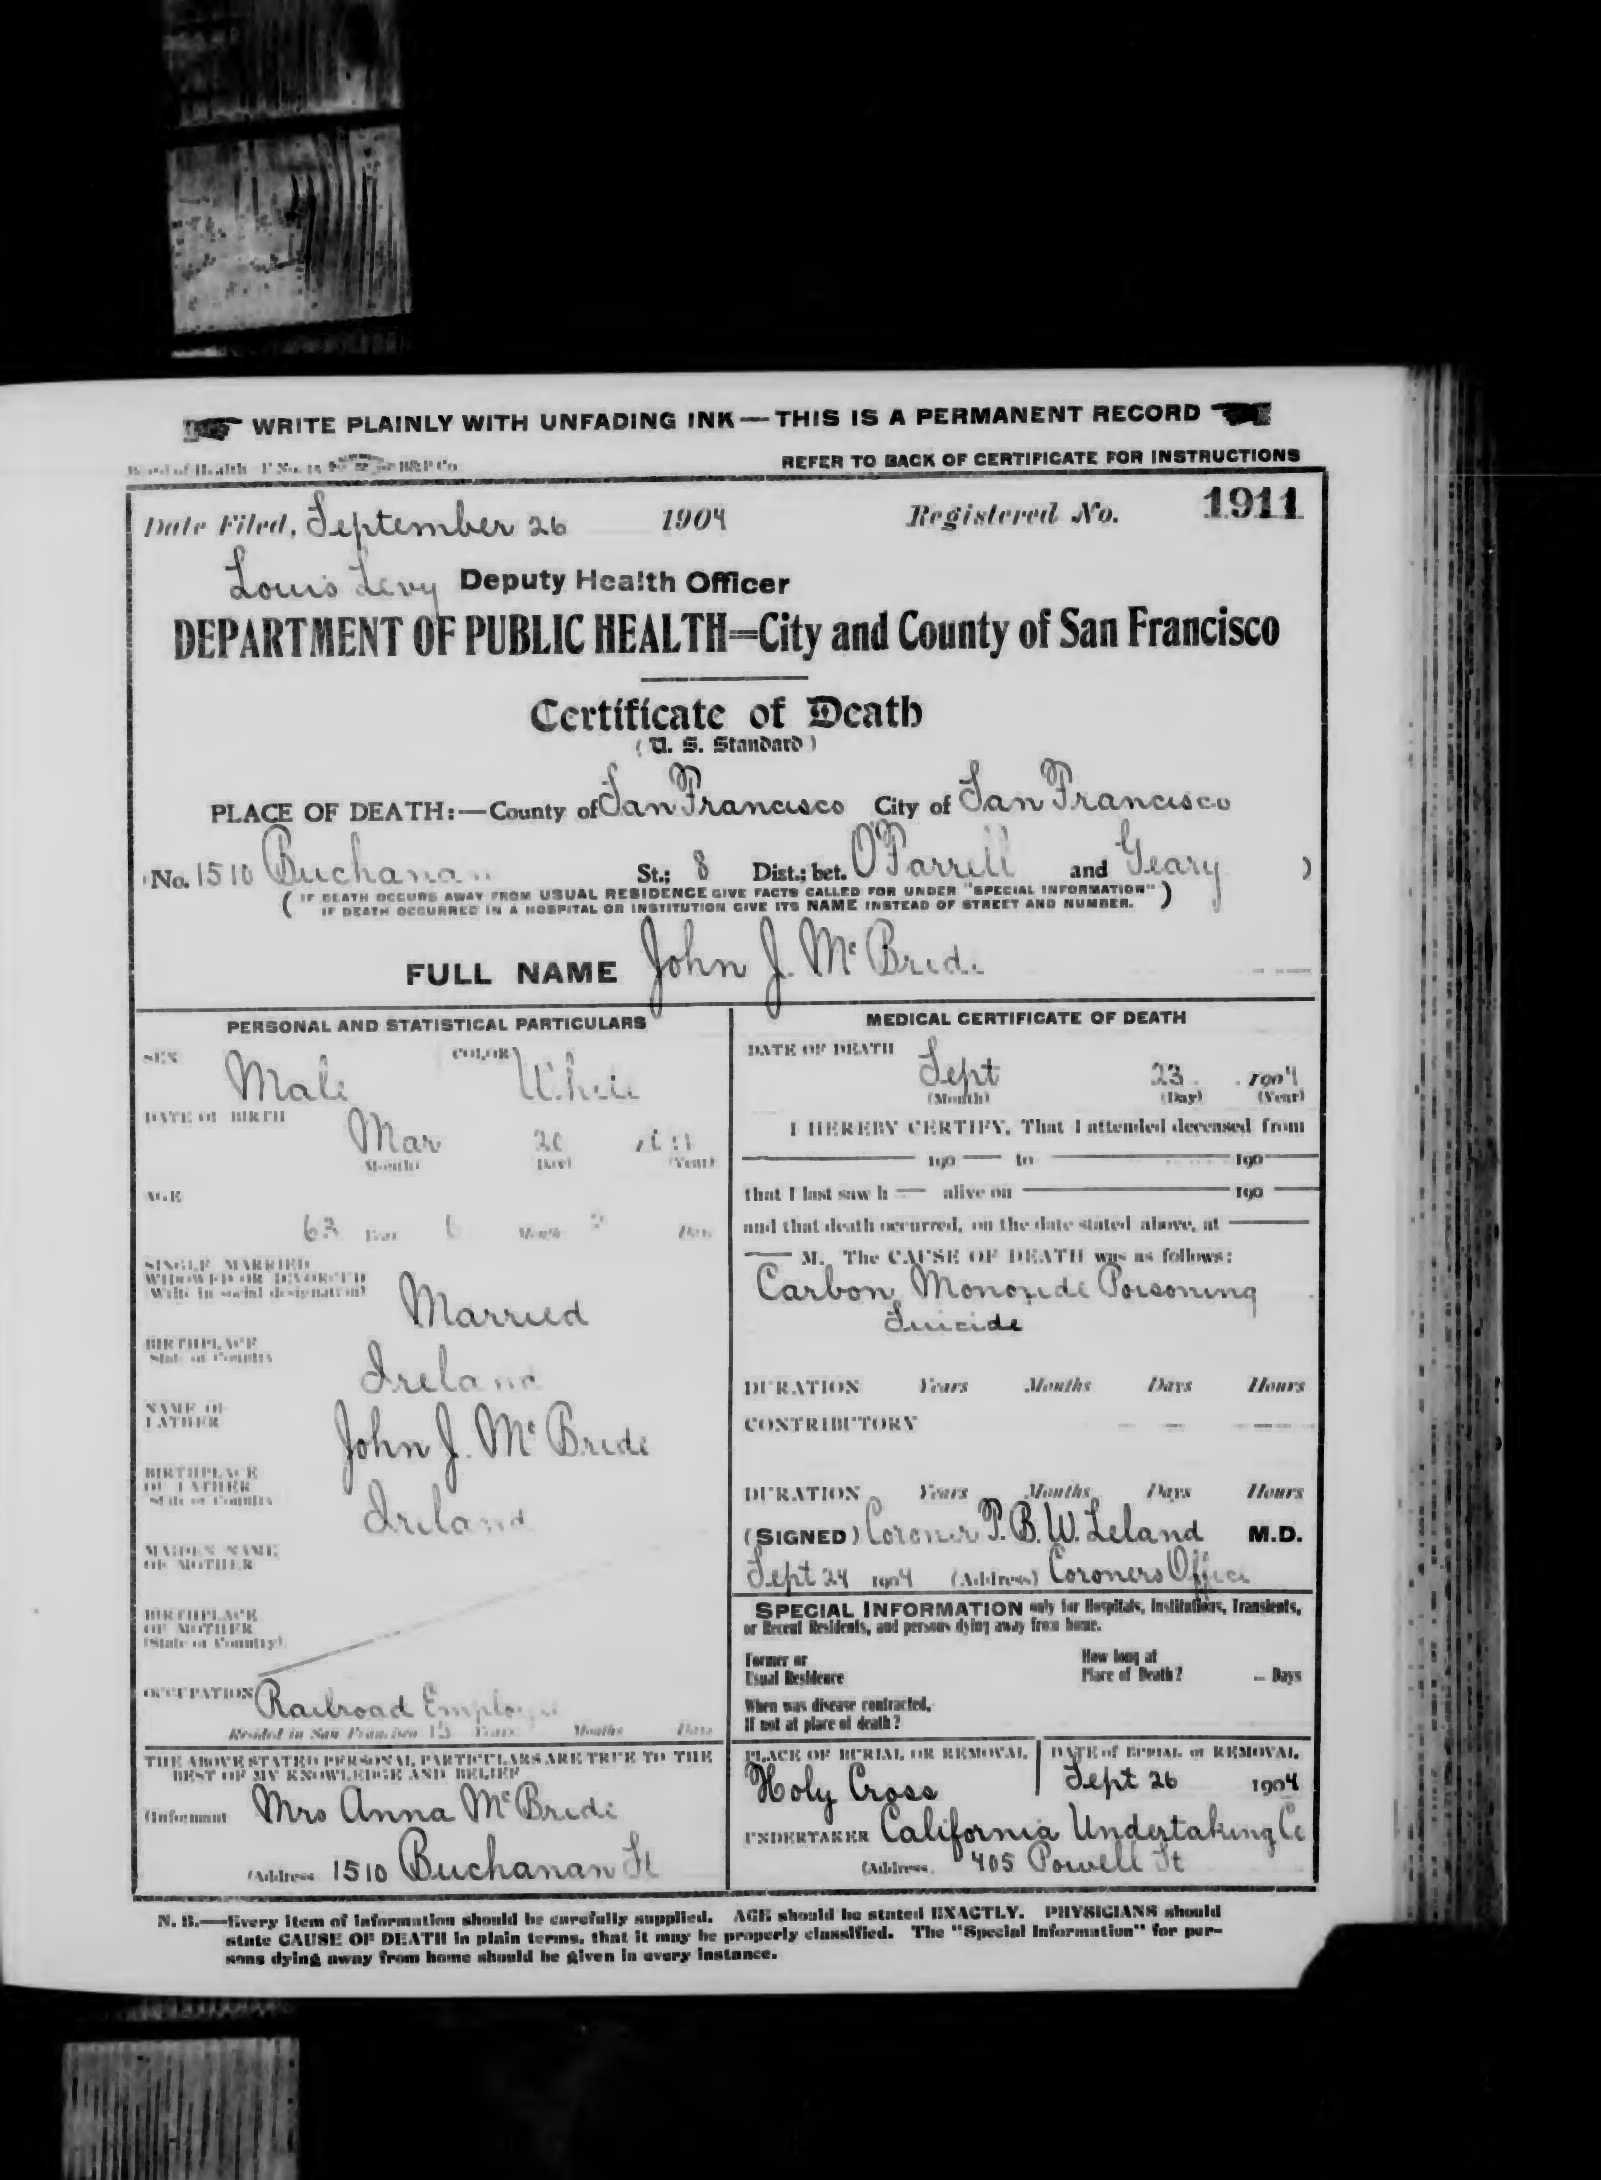 WRITE PLAINLY WITH UNFADING INK — THIS IS A PERMANENT RECORD
Board of Health B&P Co REFER TO BACK OF CERTIFICATE FOR INSTRUCTIONS
Date Filed, September 26 1904 Registered No. 1911
Louis Levy Deputy Health Officer
DEPARTMENT OF PUBLIC HEALTH=City and County of San Francisco
Certificate of Death
(U. S. Standard)
PLACE OF DEATH:—County of San Francisco City of San Francisco
(No. 1510 Buchanan St.; 8 Dist.; bet. O'Farrell and Geary )
( IF DEATH OCCURS AWAY FROM USUAL RESIDENCE GIVE FACTS CALLED FOR UNDER "SPECIAL INFORMATION" )
IF DEATH OCCURRED IN A HOSPITAL OR INSTITUTION GIVE ITS NAME INSTEAD OF STREET AND NUMBER.
FULL NAME John J. McBride
PERSONAL AND STATISTICAL PARTICULARS
SEX Male COLOR White
DATE OF BIRTH Mar 20
(Month) (Day) (Year)
AGE
63 Years 6 Months Days
SINGLE MARRIED
WIDOWED OR DIVORCED
Write in social designation)
Married
BIRTHPLACE
State or Country
Ireland
NAME OF
FATHER
John J. McBride
BIRTHPLACE
OF FATHER
State or Country
Ireland
MAIDEN NAME
OF MOTHER
BIRTHPLACE
OF MOTHER
(State or Country)
OCCUPATION Railroad Employee
Resided in San Francisco 15 Years Months Days
THE ABOVE STATED PERSONAL PARTICULARS ARE TRUE TO THE
BEST OF MY KNOWLEDGE AND BELIEF
(Informant Mrs Anna McBride
(Address 1510 Buchanan St
MEDICAL CERTIFICATE OF DEATH
DATE OF DEATH Sept 23 1904
(Month) (Day) (Year)
I HEREBY CERTIFY, That I attended deceased from
190 to 190
that I last saw h — alive on 190
and that death occurred, on the date stated above, at
M. The CAUSE OF DEATH was as follows:
Carbon Monoxide Poisoning
Suicide
DURATION Years Months Days Hours
CONTRIBUTORY
DURATION Years Months Days Hours
(SIGNED) Coroner P. B. W. Leland M.D.
Sept 24 1904 (Address) Coroners Office
SPECIAL INFORMATION only for Hospitals, Institutions, Transients,
or Recent Residents, and persons dying away from home.
Former or
Usual Residence
How long at
Place of Death? Days
When was disease contracted,
If not at place of death?
PLACE OF BURIAL OR REMOVAL
Holy Cross
DATE of BURIAL or REMOVAL
Sept 26 1904
UNDERTAKER California Undertaking Co
(Address 405 Powell St
N. B.—Every item of information should be carefully supplied. AGE should be stated EXACTLY. PHYSICIANS should
state CAUSE OF DEATH in plain terms, that it may be properly classified. The "Special Information" for per-
sons dying away from home should be given in every instance.